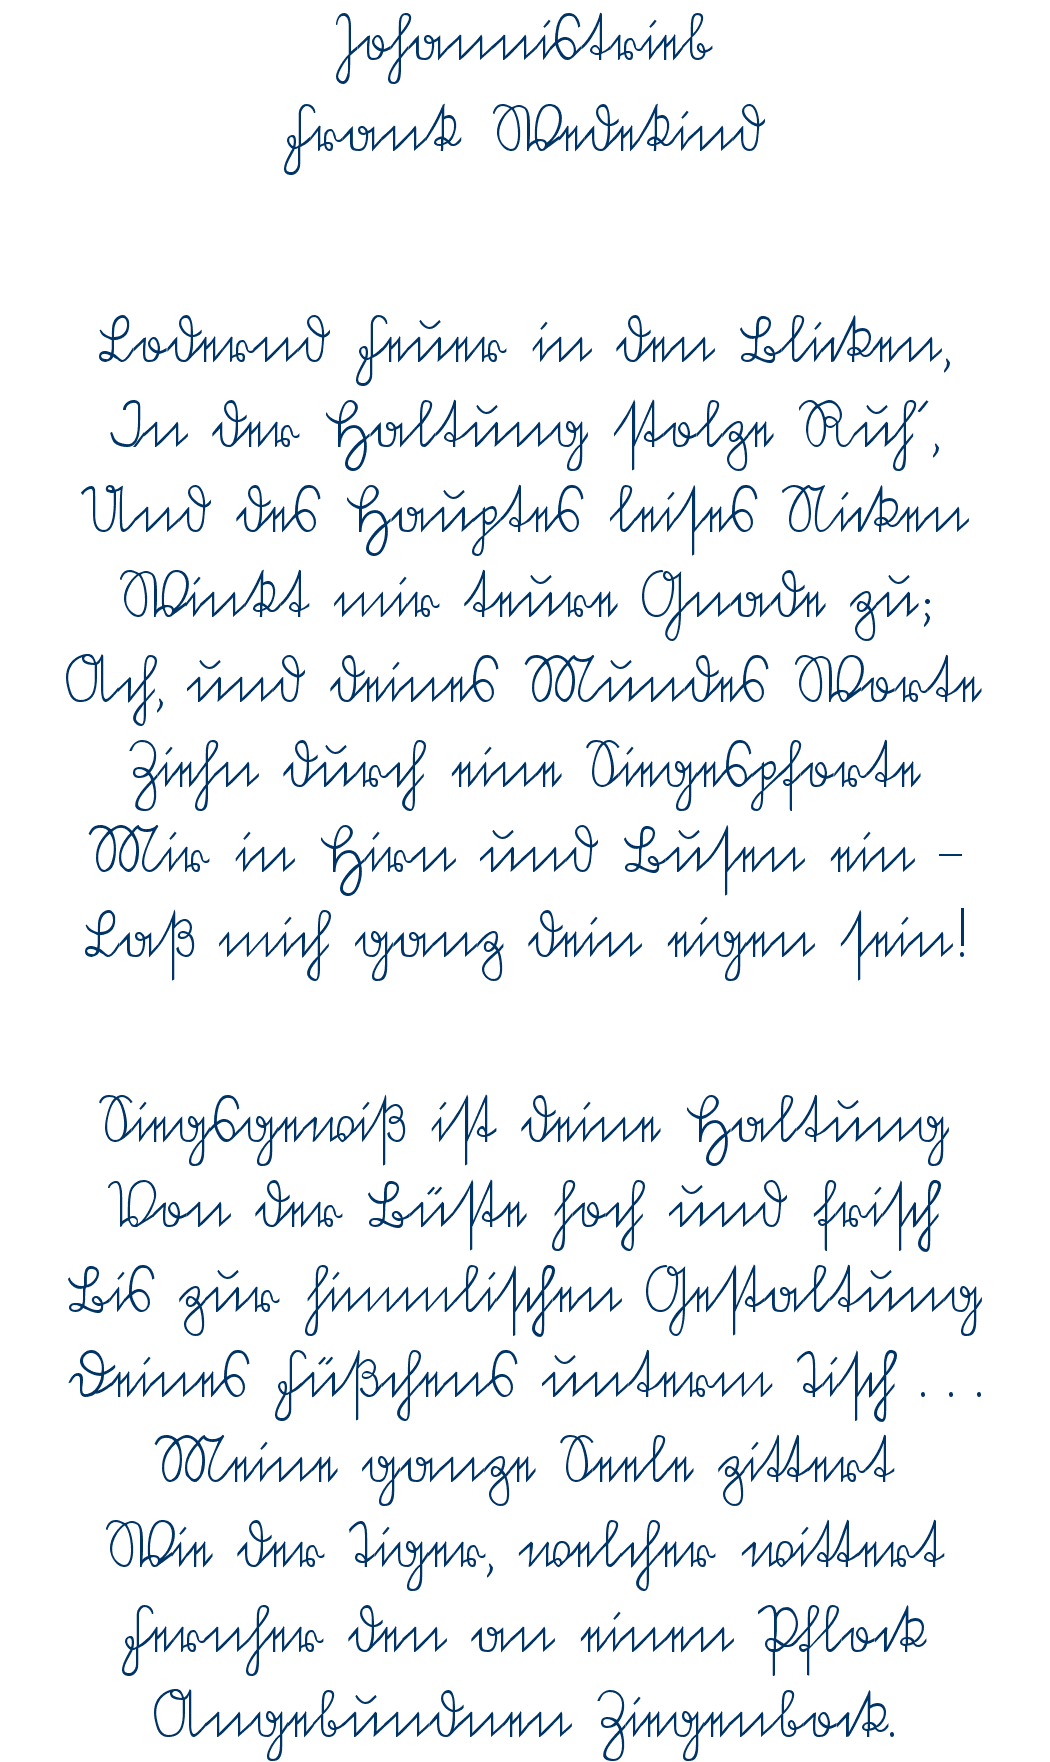 Johannistrieb
Frank Wedekind
Lodernd Feuer in den Blicken,
In der Haltung stolze Ruh',
Und des Hauptes leises Nicken
Winkt mir teure Gnade zu;
Ach, und deines Mundes Worte
Ziehn durch eine Siegespforte
Mir in Hirn und Busen ein –
Laß mich ganz dein eigen sein!
Siegsgewiß ist deine Haltung
Von der Büste hoch und frisch
Bis zur himmlischen Gestaltung
Deines Füßchens unterm Tisch . . .
Meine ganze Seele zittert
Wie der Tiger, welcher wittert
Fernher den an einen Pflock
Angebundnen Ziegenbock.